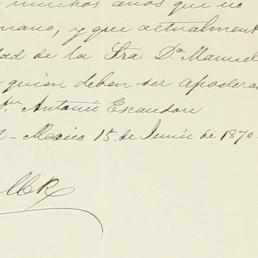 muchos años que no
mano, y que actualment
dad de la Sra. D.ª Manuel
quien deben ser apodera
Antonio Escandon
Mexico 15 de Junio de 1870.